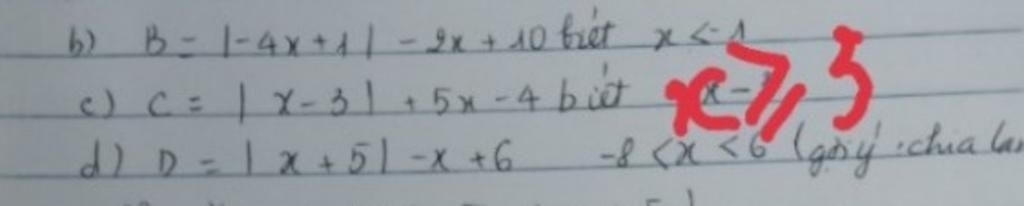 b) B = |-4x+1| - 2x + 10 biết x < -1
c) C = |x-3| + 5x - 4 biết x ⩾ 3
d) D = |x+5| - x + 6 -8 < x < 6 (gợi ý: chia